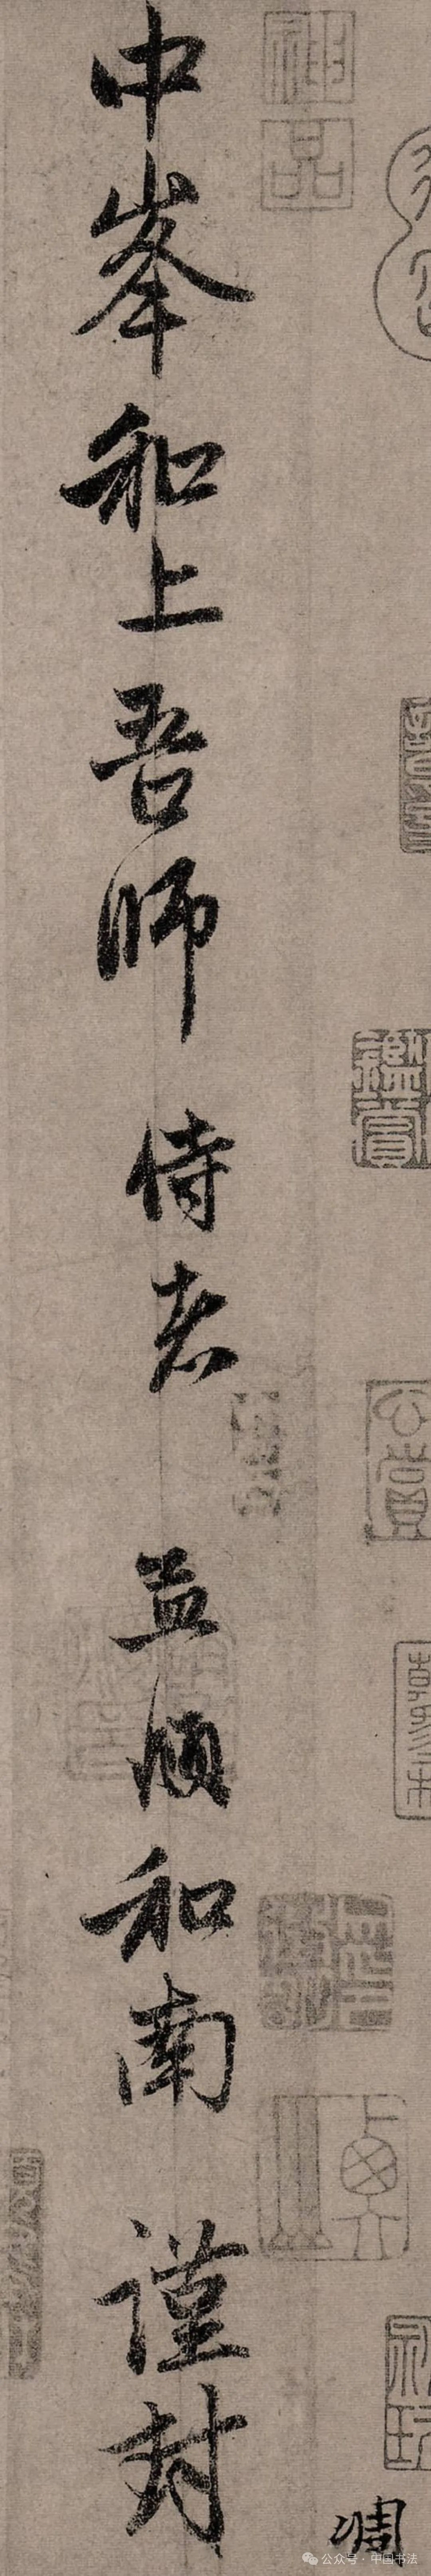 神品
鑑賞
凋
中峯和上吾師 侍者 孟頫和南 謹封
公众号·中国书法